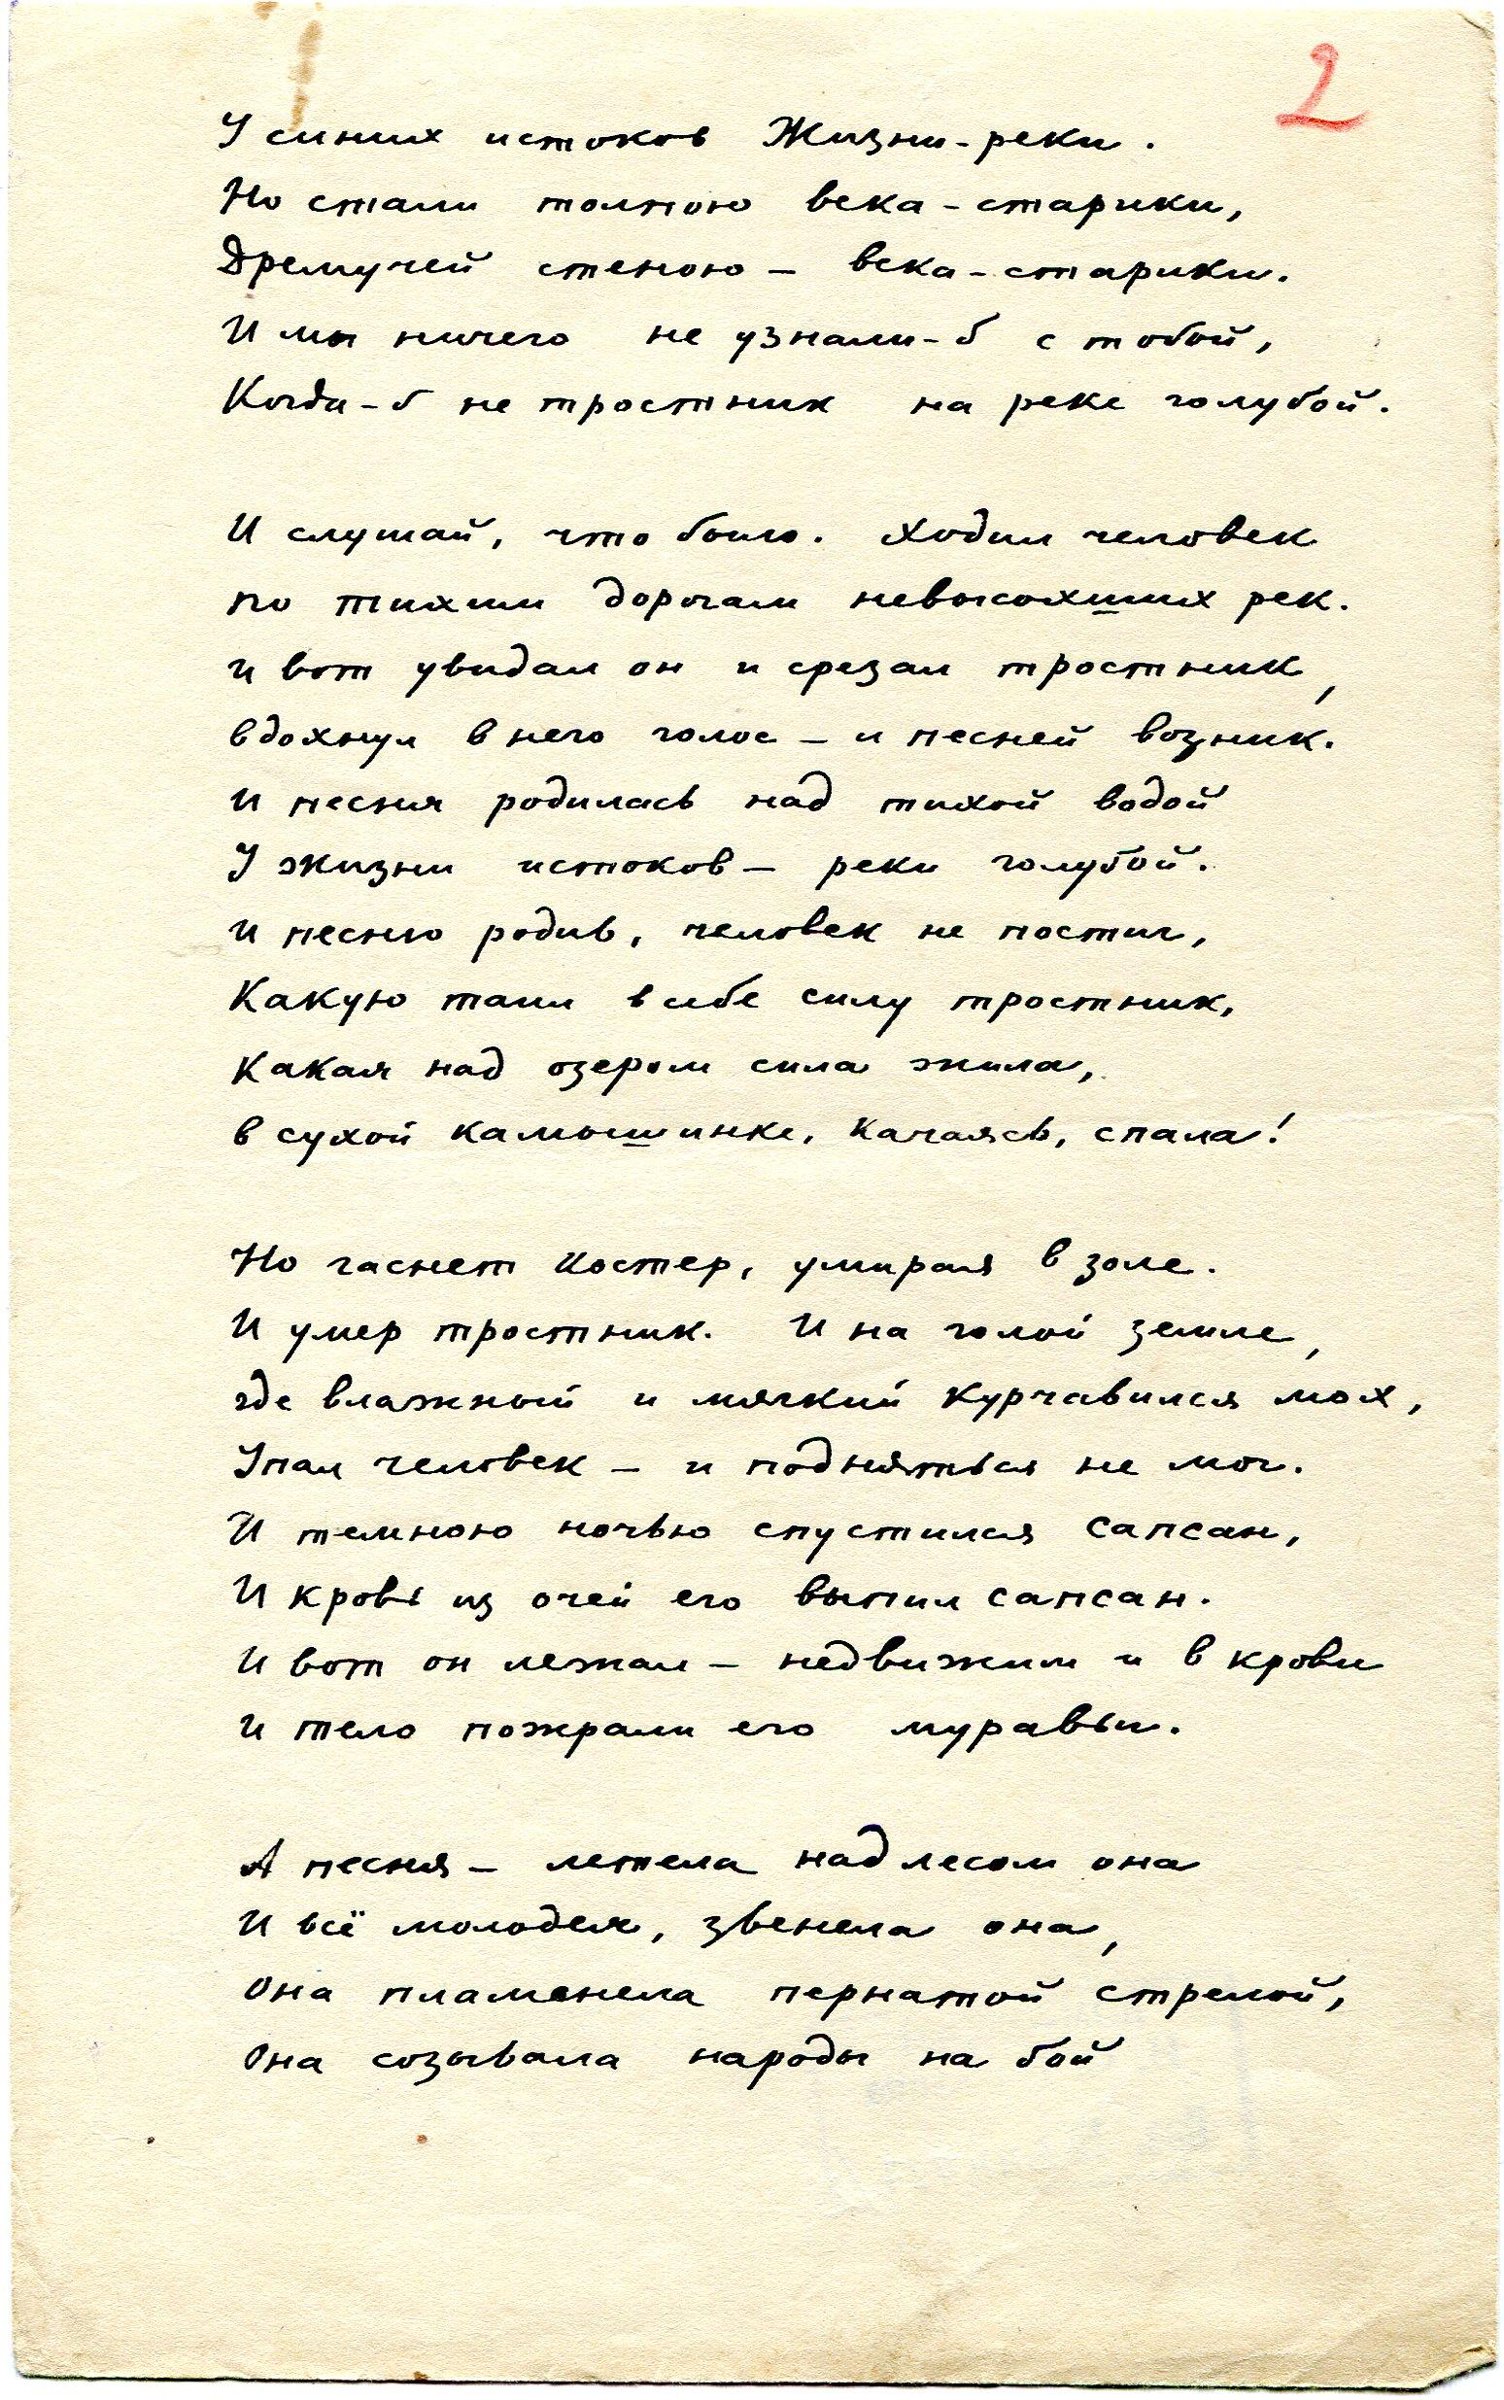 2
У синих истоков Жизни-реки.
Но стали толпою века-старики,
Дремучей стеною – века-старики.
И мы ничего не узнали-б с тобой,
Когда-б не тростник на реке голубой.
И слушай, что было. Ходил человек
по тихим дорогам невысохших рек.
и вот увидал он и срезал тростник,
вдохнул в него голос – и песней возник.
И песня родилась над тихой водой
У жизни истоков – реки голубой.
И песню родив, человек не постиг,
Какую таил в себе силу тростник,
Какая над озером сила жила,
в сухой камышинке, качаясь, спала!
Но гаснет костер, умирая в золе.
И умер тростник. И на голой земле,
где влажный и мягкий курчавился мох,
Упал человек – и подняться не мог.
И темною ночью спустился сапсан,
И кровь из очей его выпил сапсан.
И вот он лежал – недвижим и в крови
И тело пожрали его муравьи.
А песня – летела над лесом она
И всё молодея, звенела она,
Она пламенела пернатой стрелой,
Она созывала народы на бой